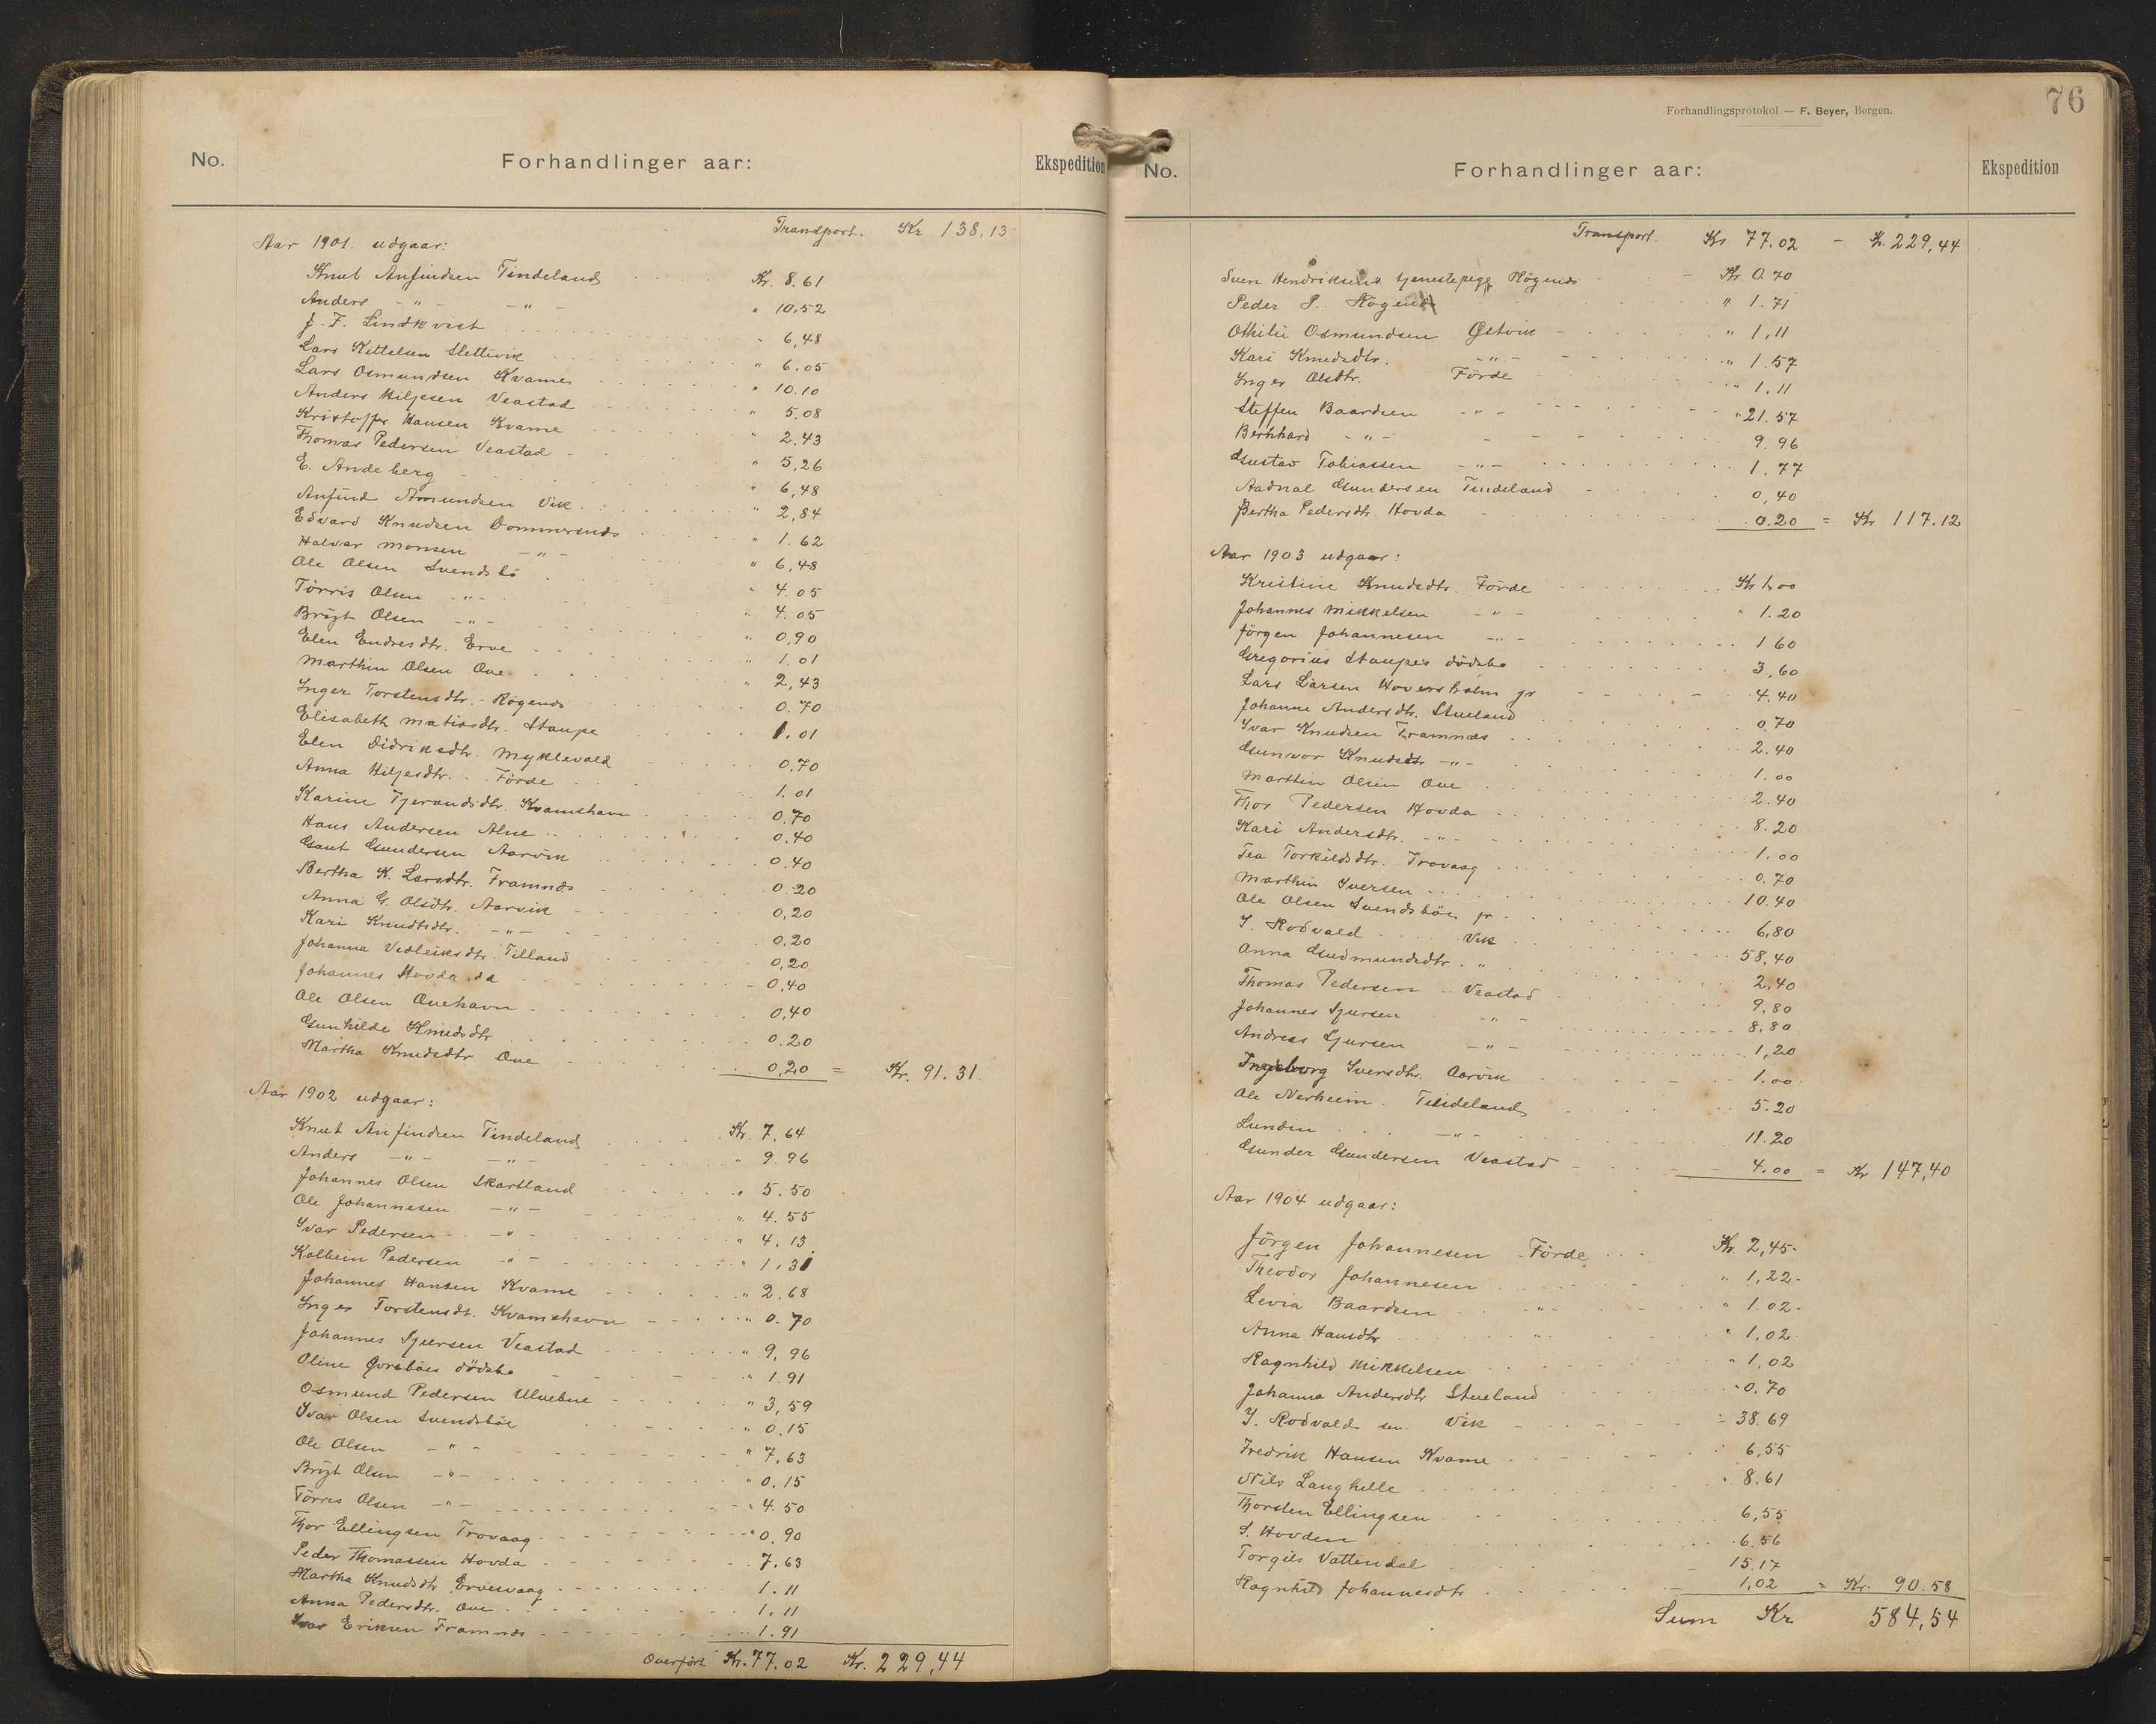 No. Forhandlinger aar: Ekspedition
Transport. Kr 138,13
Aar 1901. udgaar:
Knut Anfindsen Tindeland Kr. 8.61
Anders -"- -"- " 10,52
J. F. Lindkvist " 6,48
Lars Kittelsen Slettevik " 6.05
Lars Osmundsen Kvame " 10.10
Anders Hiljesen Veastad " 5,08
Kristoffer Hansen Kvame " 2,43
Thomas Pedersen Veastad " 5,26
E. Andeberg " 6,48
Anfind Amundsen Vik " 2,84
Edvard Knudsen Dommersnes " 1.62
Halvar Monsen -"- " 6,48
Ole Olsen Svendsbö " 4.05
Törris Olsen -"- " 4.05
Brigt Olsen -"- " 0,90
Elen Endresdtr. Erve " 1.01
Marthin Olsen Ove " 2,43
Inger Torstensdtr. Røgenes 0.70
Elisabeth Matiasdtr. Staupe 1.01
Elen Didriksdtr. Myklevold 0,70
Anna Hiljesdtr. Förde 1.01
Karine Tjerandsdtr. Kvamshavn 0.70
Hans Andersen Alne 0.40
Gaut Gundersen Aarvik 0.40
Bertha K. Larsdtr. Framnes 0.20
Anna G. Olsdtr. Aarvik 0,20
Kari Knudtsdtr. -"- 0.20
Johanna Vidleiksdtr. Tilland 0,20
Johannes Hovda d.e. 0,40
Ole Olsen Ovehavn 0,40
Gunhilde Knudsdtr 0.20
Martha Knudsdtr Ove 0,20 = Kr. 91.31.
Aar 1902 udgaar:
Knut Anfindsen Tindeland Kr. 7,64
Anders -"- -"- " 9.96
Johannes Olsen Skartland " 5.50
Ole Johannesen -"- " 4.55
Ivar Pedersen -"- " 4.13
Kolbein Pedersen -"- " 1.31
Johannes Hansen Kvame " 2.68
Inger Torstensdt. Kvamshavn " 0.70
Johannes Sjursen Veastad " 9,96
Oline dödsbo " 1.91
Osmund Pedersen Ulvebne " 3,59
Ivar Olsen Svendsböe " 0,15
Ole Olsen -"- " 7,63
Brigt Olsen -"- " 0,15
Törris Olsen -"- " 4.50
Thor Ellingsen Trovaag " 0.90
Peder Thomassen Hovda 7.63
Martha Knudsdtr Ervesvaag 1.11
Anna Pedersdtr. Ove 1.11
Ivar Eriksen Framnes 1.91
Overført Kr. 77.02 Kr. 229,44
76
Forhandlingsprotokol — F. Beyer, Bergen.
No. Forhandlinger aar: Ekspedition
Transport. Kr 77.02 - Kr. 229,44
Sven Hendriksens tjenestepige Högenes Kr. 0.70
Peder P. " 1.71
Othilie Osmundsen Østvik " 1,11
Kari Knudsdtr. -"- " 1.57
Inger Olsdtr. Förde " 1.11
Steffen Baardsen -"- " 21.57
Bernhard -"- 9.96
Gustav Tobiassen -"- 1.77
Aadnal Gundersen Tindeland 0,40
Bertha Pedersdtr. Hovda 0.20 = Kr 117.12
Aar 1903 udgaar:
Kristine Knudsdtr. Förde Kr 1,00
Johannes Mikkelsen -"- " 1.20
Jörgen Johannesen -"- 1 60
Gregorius Staupes dödsbo 3,60
Lars Larsen Hoversholm jr 4.40
Johanne Andersdtr. Stueland 0.70
Ivar Knudsen Framnæs 2.40
Gunvor Knudsdtr -"- 1.00
Marthin Olsen Ove 2.40
Thor Pedersen Hovda 8.20
Kari Andersdtr. -"- 1.00
Tea Torkildsdtr. Trovaag 0.70
Marthin Iversen 10.40
Ole Olsen Svendsböe jr. 6,80
I. Rodvald Vik 58,40
Anna Gudmundsdtr. " 2,40
Thomas Pedersen Veastad 9,80
Johannes Sjursen -"- 8,80
Andreas Sjursen -"- 1,20
Ingeborg Iversdtr. Aarvik 1.00
Ole Nerheim. Tindeland 5.20
Lundin -"- 11.20
Gunder Gundersen Veastad 4.00 = Kr 147,40
Aar 1904 udgaar:
Jörgen Johannesen Förde Kr. 2,45-
Theodor Johannesen " 1,22-
Levia Baardsen -"- " 1.02-
Anna Hansdtr " " 1,02
Ragnhild Mikkelsen " 1,02
Johanna Andersdtr Stueland " 0.70
I. Rodvald sen. Vik - 38.69
Fredrik Hansen Kvame 6,55
Nils Langhelle " 8.61
Thorsten Ellingsen 6,55
S. Hovden 6.56
Torgils Vattendal 15.17
Ragnhild Johannesdtr 1,02 = Kr. 90.58
Sum Kr 584,54